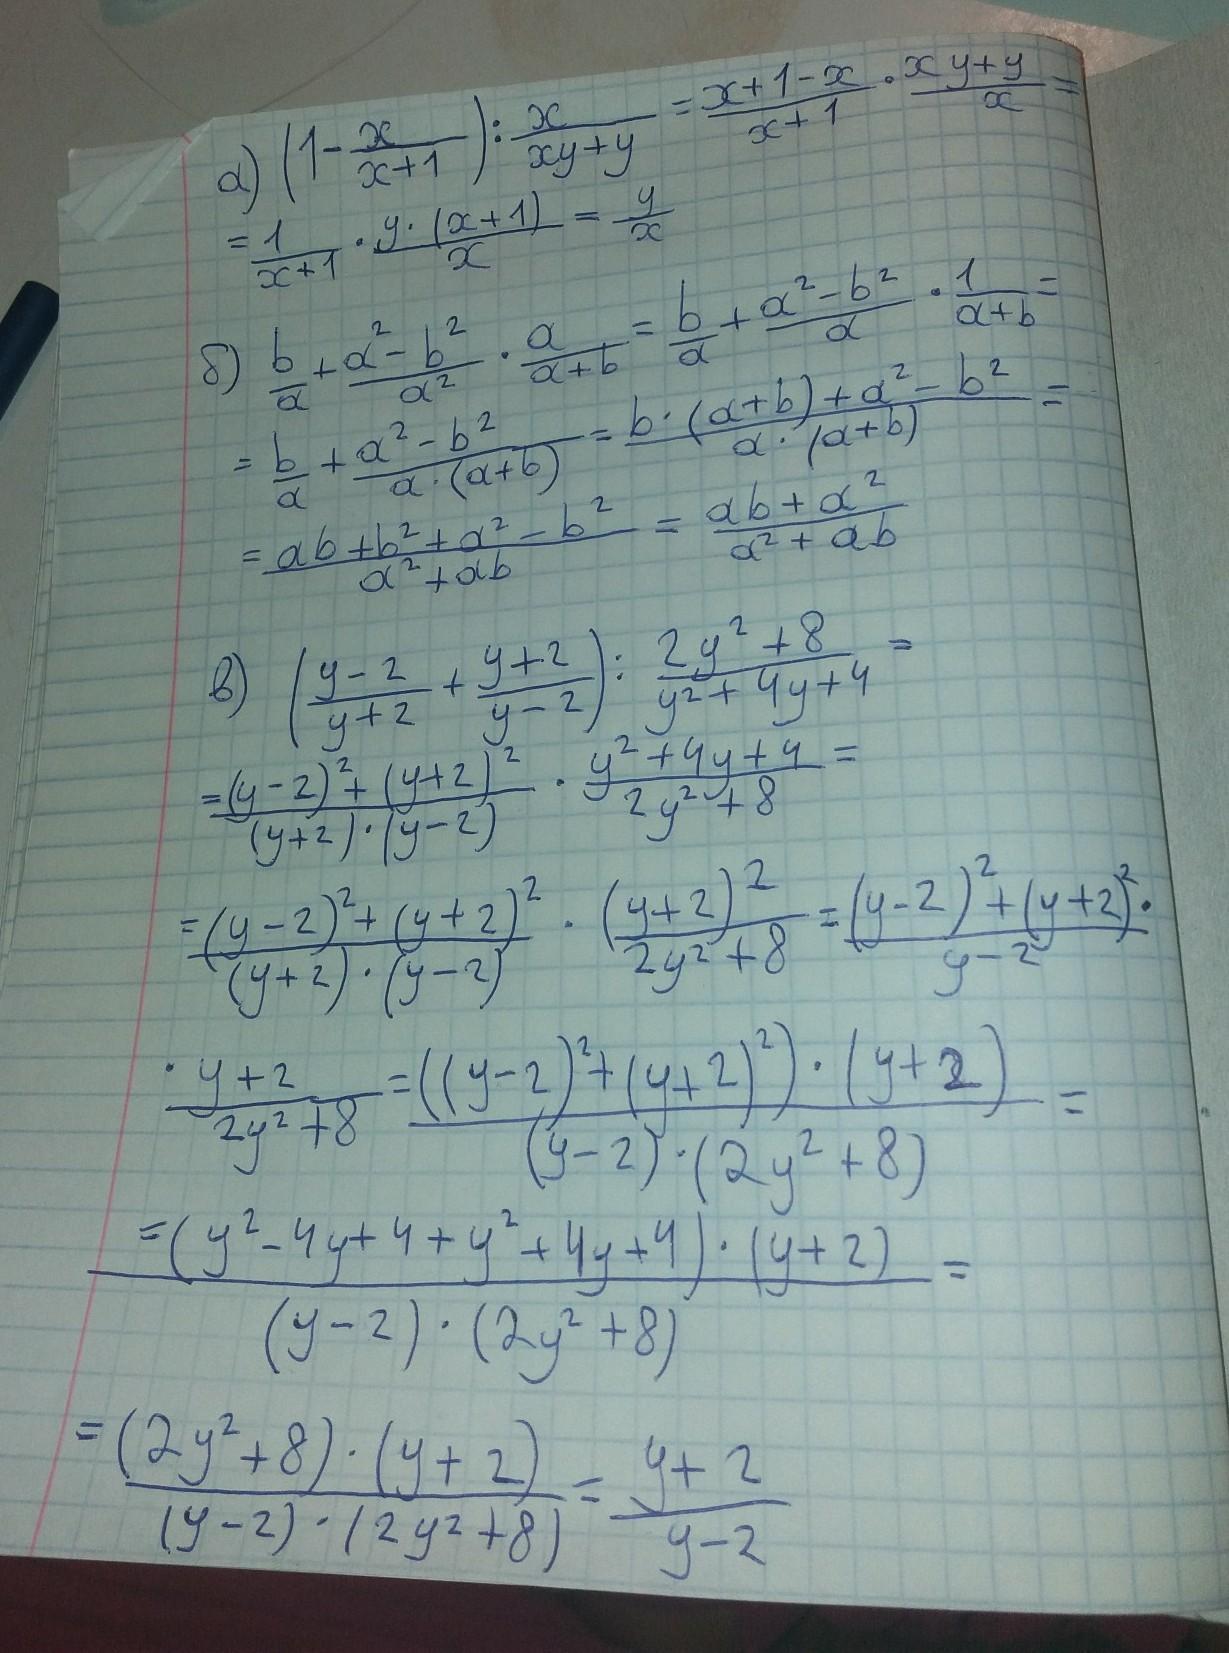 а) (1 - x/(x+1)) : x/(xy+y) = (x+1-x)/(x+1) · (xy+y)/x =
= 1/(x+1) · y·(x+1)/x = y/x
б) b/a + (a² - b²)/a² · a/(a+b) = b/a + (a² - b²)/a · 1/(a+b) =
= b/a + (a² - b²)/(a·(a+b)) = (b·(a+b) + a² - b²)/(a·(a+b)) =
= (ab + b² + a² - b²)/(a² + ab) = (ab + a²)/(a² + ab)
в) ((y-2)/(y+2) + (y+2)/(y-2)) : (2y² + 8)/(y² + 4y + 4) =
= ((y-2)² + (y+2)²)/((y+2)·(y-2)) · (y² + 4y + 4)/(2y² + 8) =
= ((y-2)² + (y+2)²)/((y+2)·(y-2)) · (y+2)²/(2y² + 8) = ((y-2)² + (y+2)²)/(y-2) ·
· (y+2)/(2y² + 8) = (((y-2)² + (y+2)²)·(y+2))/((y-2)·(2y² + 8)) =
= ((y² - 4y + 4 + y² + 4y + 4)·(y+2))/((y-2)·(2y² + 8)) =
= ((2y² + 8)·(y+2))/((y-2)·(2y² + 8)) = (y+2)/(y-2)